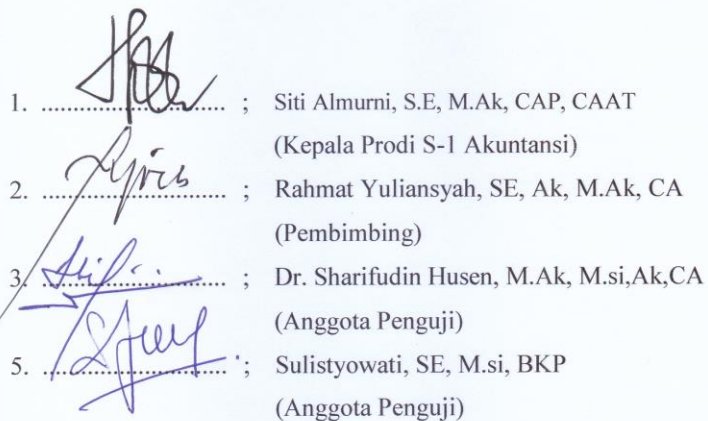 1. .............................. ; Siti Almurni, S.E, M.Ak, CAP, CAAT
(Kepala Prodi S-1 Akuntansi)
2. .............................. ; Rahmat Yuliansyah, SE, Ak, M.Ak, CA
(Pembimbing)
3. .............................. ; Dr. Sharifudin Husen, M.Ak, M.si,Ak,CA
(Anggota Penguji)
5. .............................. ; Sulistyowati, SE, M.si, BKP
(Anggota Penguji)